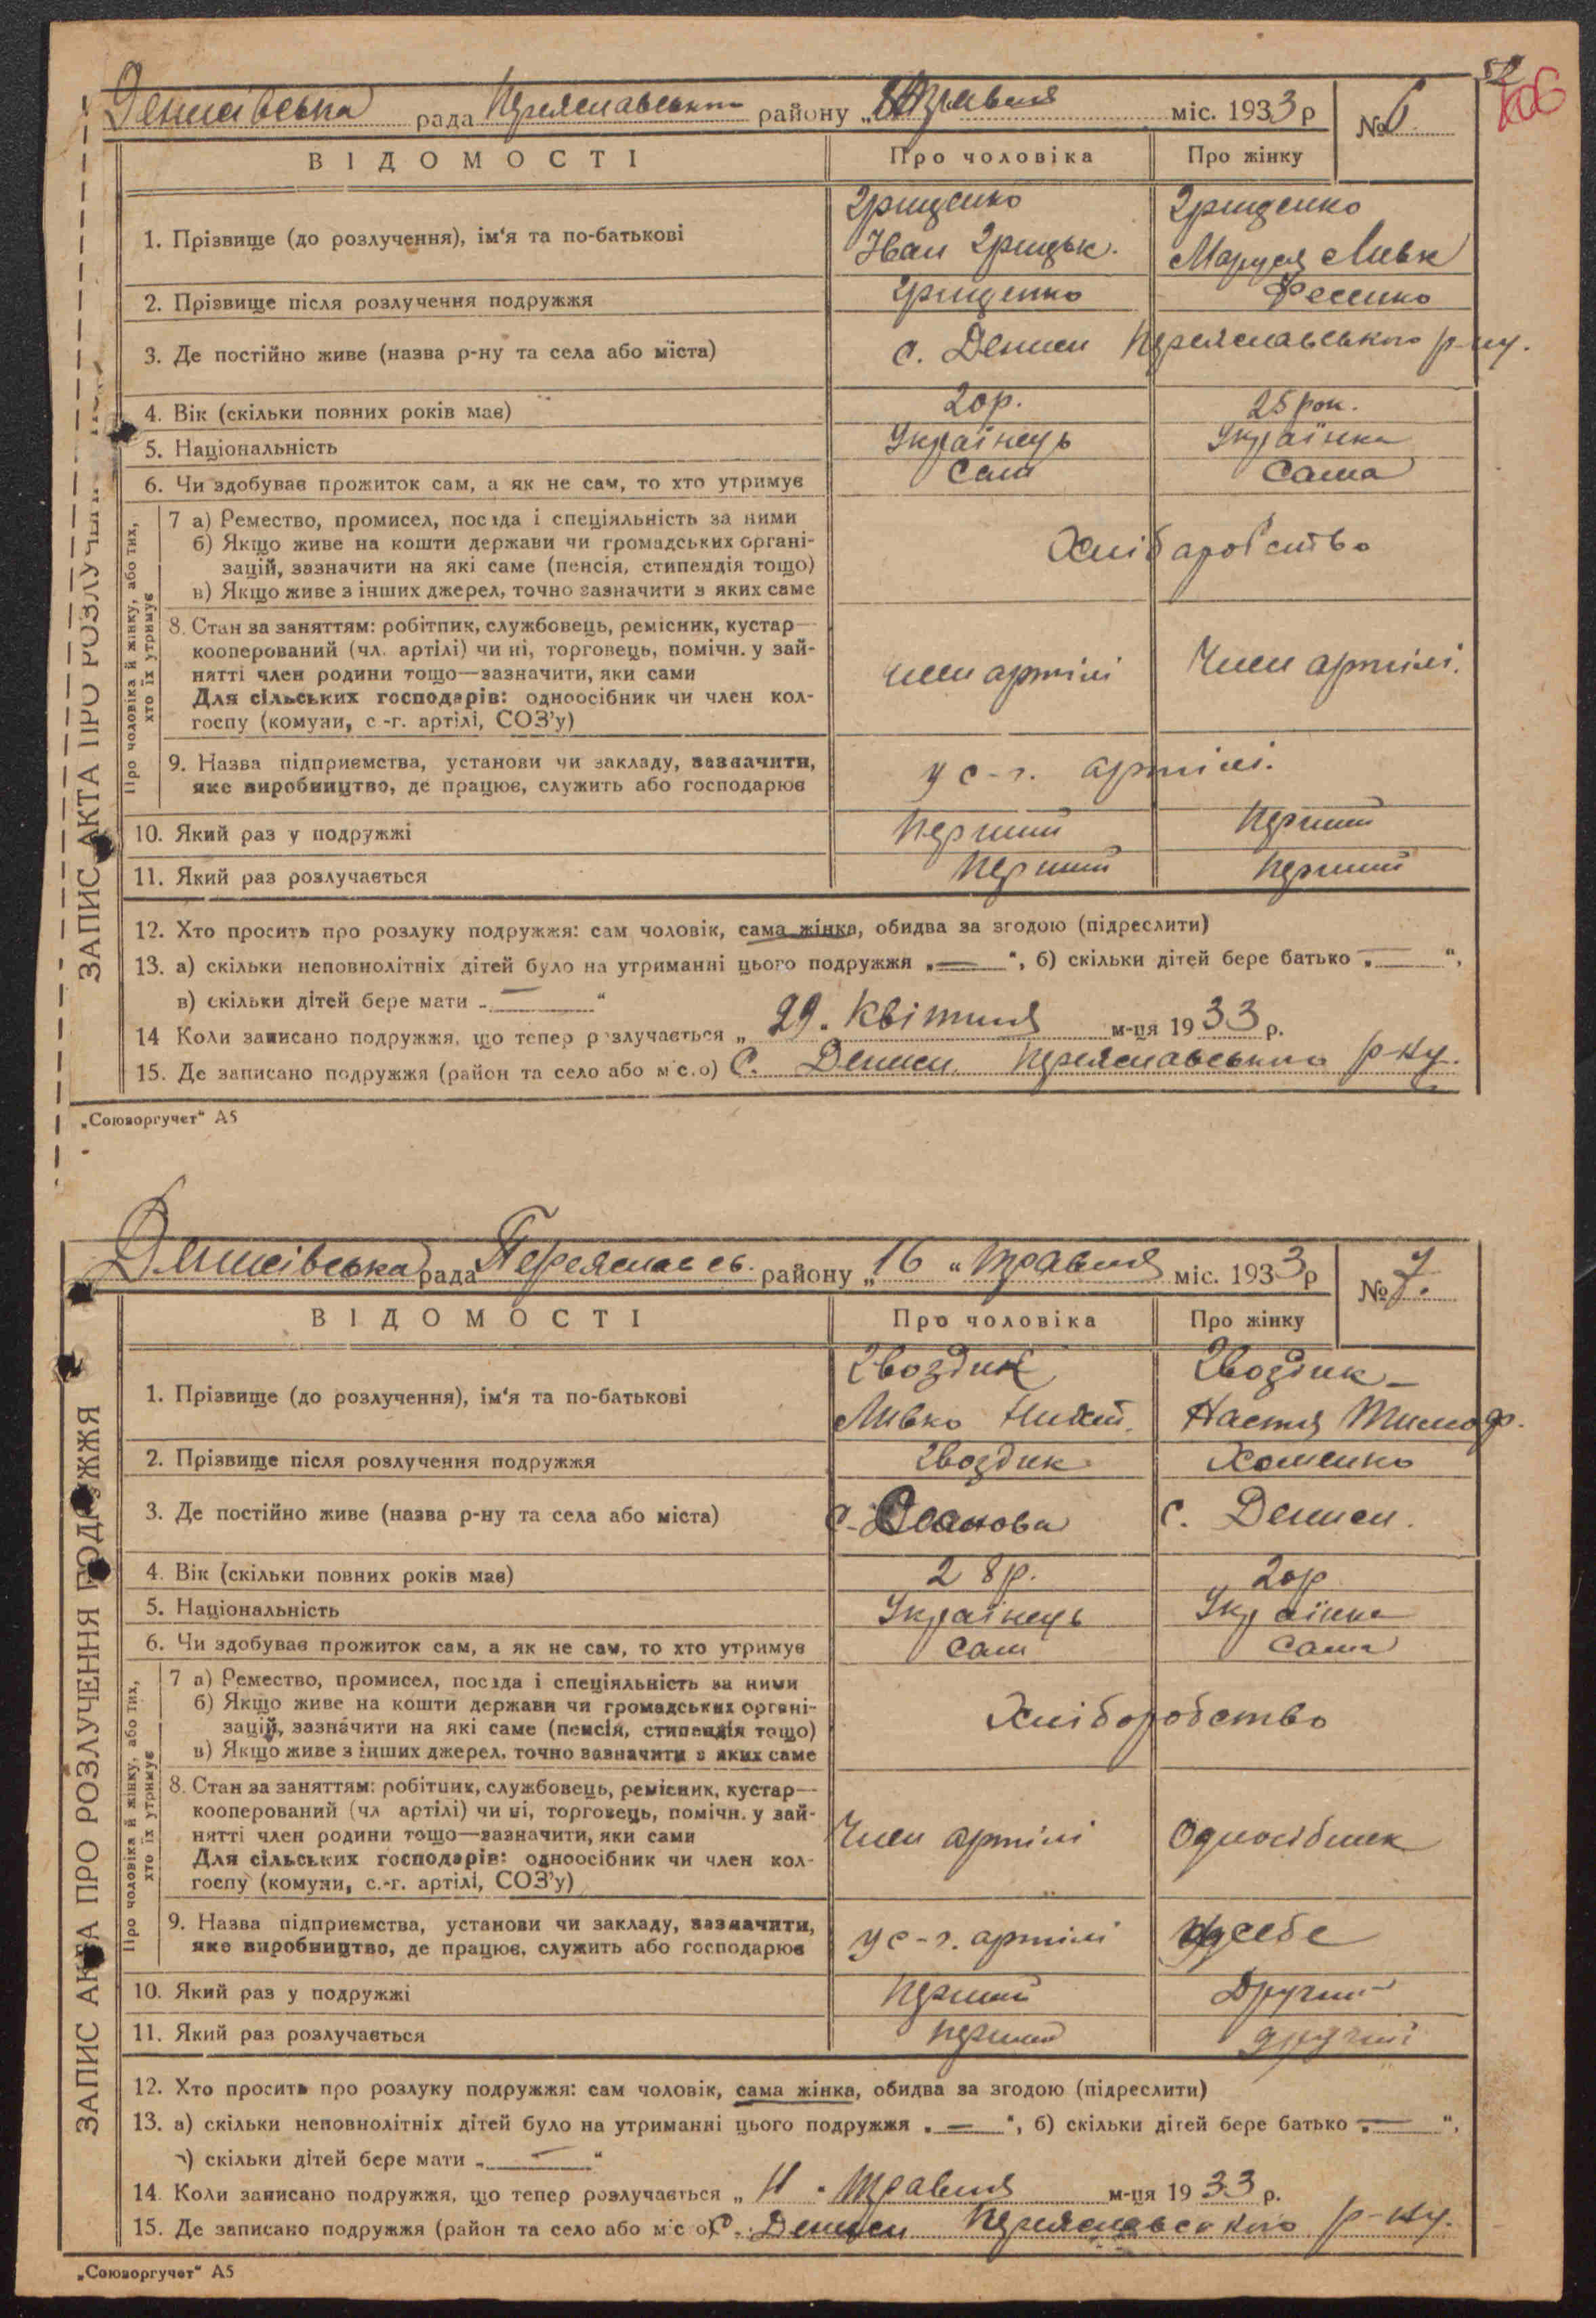 52
106
Денисівська рада Переяславськ району „ травня міс. 1933 р № 6
ВІДОМОСТІ Про чоловіка Про жінку
1. Прізвище (до розлучення), ім'я та по-батькові Грищенко Іван Грицьк. Грищенко Маруся Мивк
2. Прізвище після розлучення подружжя Грищенко Фесенко
3. Де постійно живе (назва р-ну та села або міста) с. Дениси Переяславського р-ну.
4. Вік (скільки повних років має) 20р. 25 рок.
5. Національність Українець Українка
6. Чи здобував прожиток сам, а як не сам, то хто утримує Сам Сама
Про чоловіка й жінку, або тих, хто їх утримує
7 а) Ремество, промисел, посада і спеціяльність за ними
б) Якщо живе на кошти держави чи громадських органі-
зацій, зазначити на які саме (пенсія, стипендія тощо)
в) Якщо живе з інших джерел, точно зазначити з яких саме
Хліборобство
8. Стан за заняттям: робітник, службовець, ремісник, кустар—
кооперований (чл. артілі) чи ні, торговець, помічн. у зай-
нятті член родини тощо—зазначити, яки сами
Для сільських господарів: одноосібник чи член кол-
госпу (комуни, с.-г. артілі, СОЗ'у)
член артілі Член артілі.
9. Назва підприємства, установи чи закладу, зазначити,
яке виробництво, де працює, служить або господарює
у с-г. артілі.
10. Який раз у подружжі Перший Перший
11. Який раз розлучається Перший Перший
12. Хто просить про розлуку подружжя: сам чоловік, сама жінка, обидва за згодою (підреслити)
13. а) скільки неповнолітніх дітей було на утриманні цього подружжя „—", б) скільки дітей бере батько „—",
в) скільки дітей бере мати „—"
14 Коли записано подружжя, що тепер розлучається „ 29. Квітня м-ця 1933 р.
15. Де записано подружжя (район та село або місто) С. Дениси, Переяславського р-ну.
„Союзоргучет" А5
ЗАПИС АКТА ПРО РОЗЛУЧЕН
Денисівська рада Переяславсь. району „16" травня міс. 1933 р № 7.
ВІДОМОСТІ Про чоловіка Про жінку
1. Прізвище (до розлучення), ім'я та по-батькові Гвоздик Мивко Никит. Гвоздик Настя Тимоф.
2. Прізвище після розлучення подружжя Гвоздик Хоменко
3. Де постійно живе (назва р-ну та села або міста) с. с. Дениси.
4. Вік (скільки повних років має) 28р. 20р
5. Національність Українець Українка
6. Чи здобував прожиток сам, а як не сам, то хто утримує Сам Сама
Про чоловіка й жінку, або тих, хто їх утримує
7 а) Ремество, промисел, посада і спеціяльність за ними
б) Якщо живе на кошти держави чи громадських органі-
зацій, зазначити на які саме (пенсія, стипендія тощо)
в) Якщо живе з інших джерел, точно зазначити з яких саме
Хліборобство
8. Стан за заняттям: робітник, службовець, ремісник, кустар—
кооперований (чл артілі) чи ні, торговець, помічн. у зай-
нятті член родини тощо—зазначити, яки сами
Для сільських господарів: одноосібник чи член кол-
госпу (комуни, с.-г. артілі, СОЗ'у)
Член артілі Одноосібник
9. Назва підприємства, установи чи закладу, зазначити,
яке виробництво, де працює, служить або господарює
у с-г. артілі у себе
10. Який раз у подружжі Перший Другий
11. Який раз розлучається перший другий
12. Хто просить про розлуку подружжя: сам чоловік, сама жінка, обидва за згодою (підреслити)
13. а) скільки неповнолітніх дітей було на утриманні цього подружжя „—", б) скільки дітей бере батько „—",
в) скільки дітей бере мати „—"
14. Коли записано подружжя, що тепер розлучається „ 11. травня м-ця 1933 р.
15. Де записано подружжя (район та село або місто) С. Дениси Переяславського р-ну.
„Союзоргучет" А5
ЗАПИС АКТА ПРО РОЗЛУЧЕННЯ ПОДРУЖЖЯ